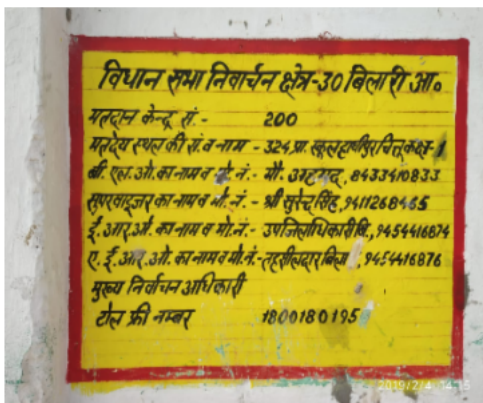 विधान सभा निर्वाचन क्षेत्र-30 बिलारी आ०
मतदान केन्द्र सं.- 200
मतदेय स्थल की सं. व नाम - 324, प्रा. स्कूल हाथीपुर चित्तू कक्ष-1
बी. एल. ओ. का नाम व मो. नं.- मौ. अहमद, 8433410833
सुपरवाइजर का नाम व मो. नं.- श्री सुरेन्द्र सिंह, 9411268465
ई. आर. ओ. का नाम व मो. नं.- उपजिलाधिकारी बि., 9454416874
ए. ई. आर. ओ. का नाम व मो. नं.- तहसीलदार 9454416876
मुख्य निर्वाचन अधिकारी
टोल फ्री नम्बर 1800180195
2019/2/4 14:15